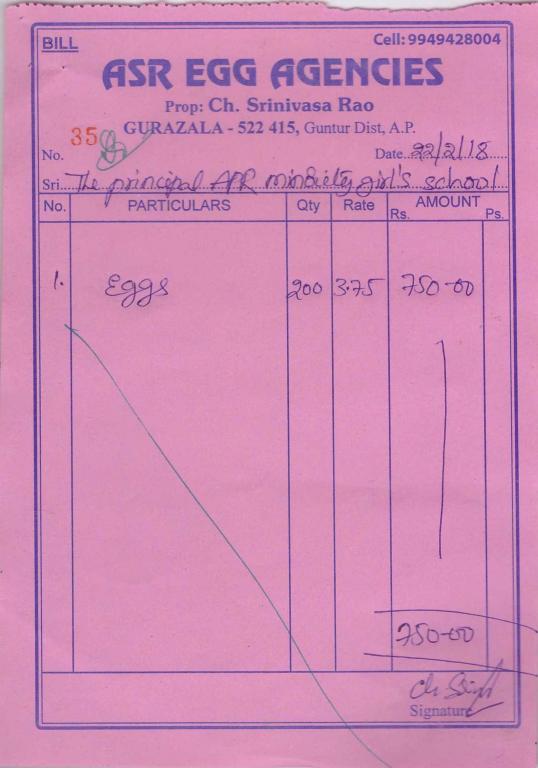 BILL
Cell: 9949428004
ASR EGG AGENCIES
Prop: Ch. Srinivasa Rao
GURAZALA - 522 415, Guntur Dist, A.P.
No. 35
Date 22/2/18
Sri. The principal APR minority girl's school
No. PARTICULARS Qty Rate AMOUNT
Rs. Ps.
1. Eggs 200 3.75 750-00
750-00
Signature